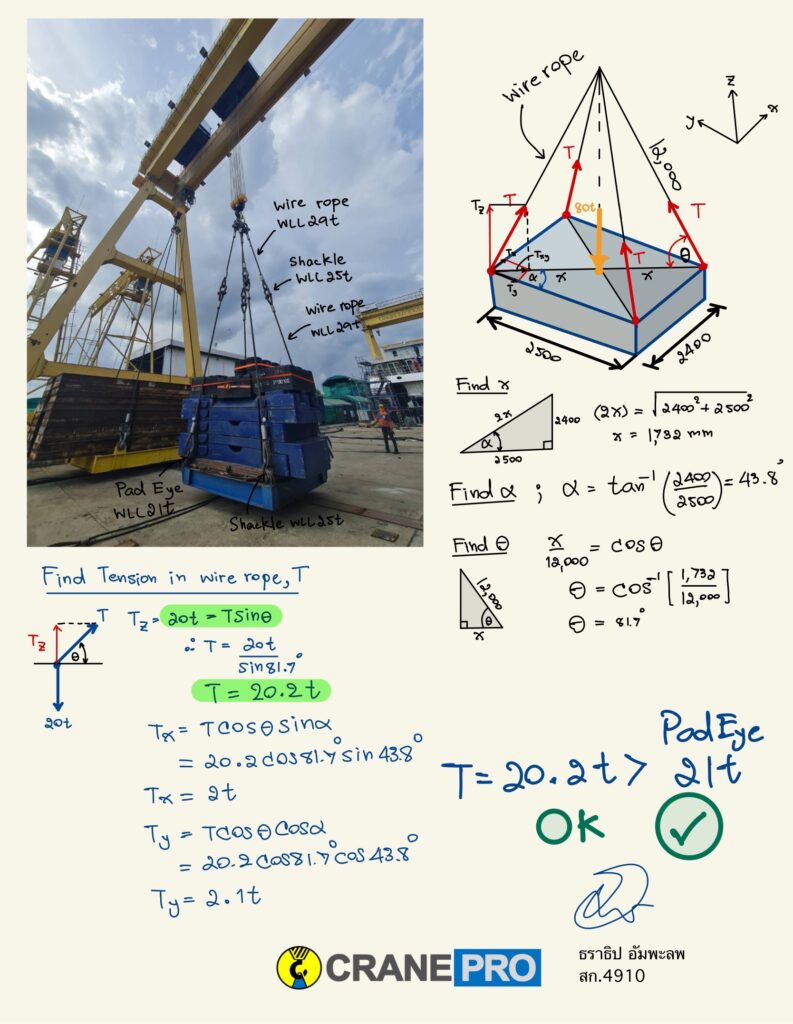 wire rope
WLL 29t
Shackle
WLL 25t
wire rope
WLL 29t
Pad Eye
WLL 21t
Shackle WLL 25t
wire rope
z
y
x
12,000
T
T
T
T
Tz
80t
Tx
Txy
Ty
α
x
x
θ
2500
2400
Find x
2x
2400
α
2500
(2x) = √2400² + 2500²
x = 1,732 mm
Find α ; α = tan⁻¹ (2400/2500) = 43.8°
Find θ
x/12,000 = cos θ
12,000
θ
x
θ = cos⁻¹ [1,732/12,000]
θ = 81.7°
Find Tension in wire rope, T
T
Tz
θ
20t
Tz = 20t = T sinθ
∴ T = 20t/sin 81.7°
T = 20.2t
Tx = T cos θ sin α
= 20.2 cos 81.7° sin 43.8°
Tx = 2t
Ty = T cos θ cos α
= 20.2 cos 81.7° cos 43.8°
Ty = 2.1t
Pad Eye
T = 20.2t > 21t
OK ✓
ธราธิป อัมพะลพ
สก.4910
CRANEPRO